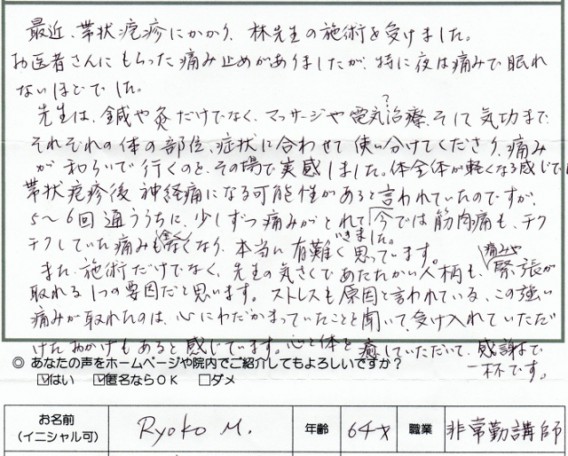 最近、帯状疱疹にかかり、林先生の施術を受けました。
お医者さんにもらった痛み止めがありましたが、特に夜は痛みで眠れ
ないほどでした。
先生は、鍼や灸だけでなく、マッサージや電気治療、そして気功まで、
?
それぞれの体の部位、症状に合わせて使い分けてくださり、痛み
が和らいで行くのを、その場で実感しました。体全体が軽くなる感じで
帯状疱疹後神経痛になる可能性があると言われていたのですが、
5〜6回通ううちに、少しずつ痛みがとれていきました。今では筋肉痛も、チク
チクしていた痛みも全くなくなり、本当に有難く思っています。
また、施術だけでなく、先生の気さくであたたかい人柄も、痛みや緊張が
取れる1つの要因だと思います。ストレスも原因と言われている、この強い
痛みが取れたのは、心にわだかまっていたことを聞いて、受け入れていただ
けたおかげもあると感じています。心と体を癒していただいて、感謝で
一杯です。
◎ あなたの声をホームページや院内でご紹介してもよろしいですか?
☑はい ☑匿名ならOK □ダメ
お名前
(イニシャル可) Ryoko M. 年齢 64才 職業 非常勤講師